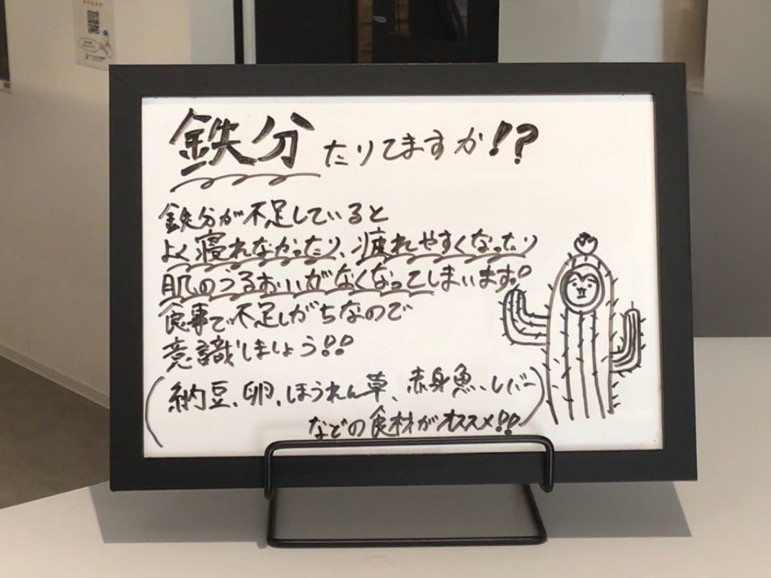 鉄分たりてますか!?
鉄分が不足していると
よく寝れなかったり、疲れやすくなったり
肌のうるおいがなくなってしまいます。
食事で不足しがちなので
意識しましょう!!
(納豆、卵、ほうれん草、赤身魚、レバー
などの食材がオススメ!!)